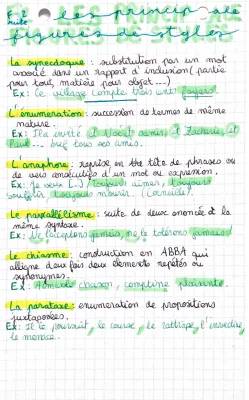 les principales
figures de styles
La synecdoque : substitution par un mot
associé dans un rapport d'inclusion (partie
pour tout, matière pour objet...)
Ex : Le village compte trois cent foyers.
L'énumération : succession de termes de même
nature.
Ex : Il a invité
Paul... bref tous ses amis.
L'anaphore : reprise en tête de phrases ou
de vers consécutifs d'un mot ou expression.
Ex : Je veux (...) toujours aimer, toujours
souffrir toujours mourir (Corneille).
Le parallélisme : suite de deux énoncés à la
même syntaxe.
Ex : Ne l'acceptons jamais, ne le tolérons jamais!
Le chiasme : construction en ABBA qui
aligne deux fois deux éléments répétés ou
synonymes.
Ex : Admirable chanson, comptine plaisante.
La parataxe : énumération de propositions
juxtaposées.
Ex : Il le poursuit, le course, le rattrape, l'invective,
le menace.